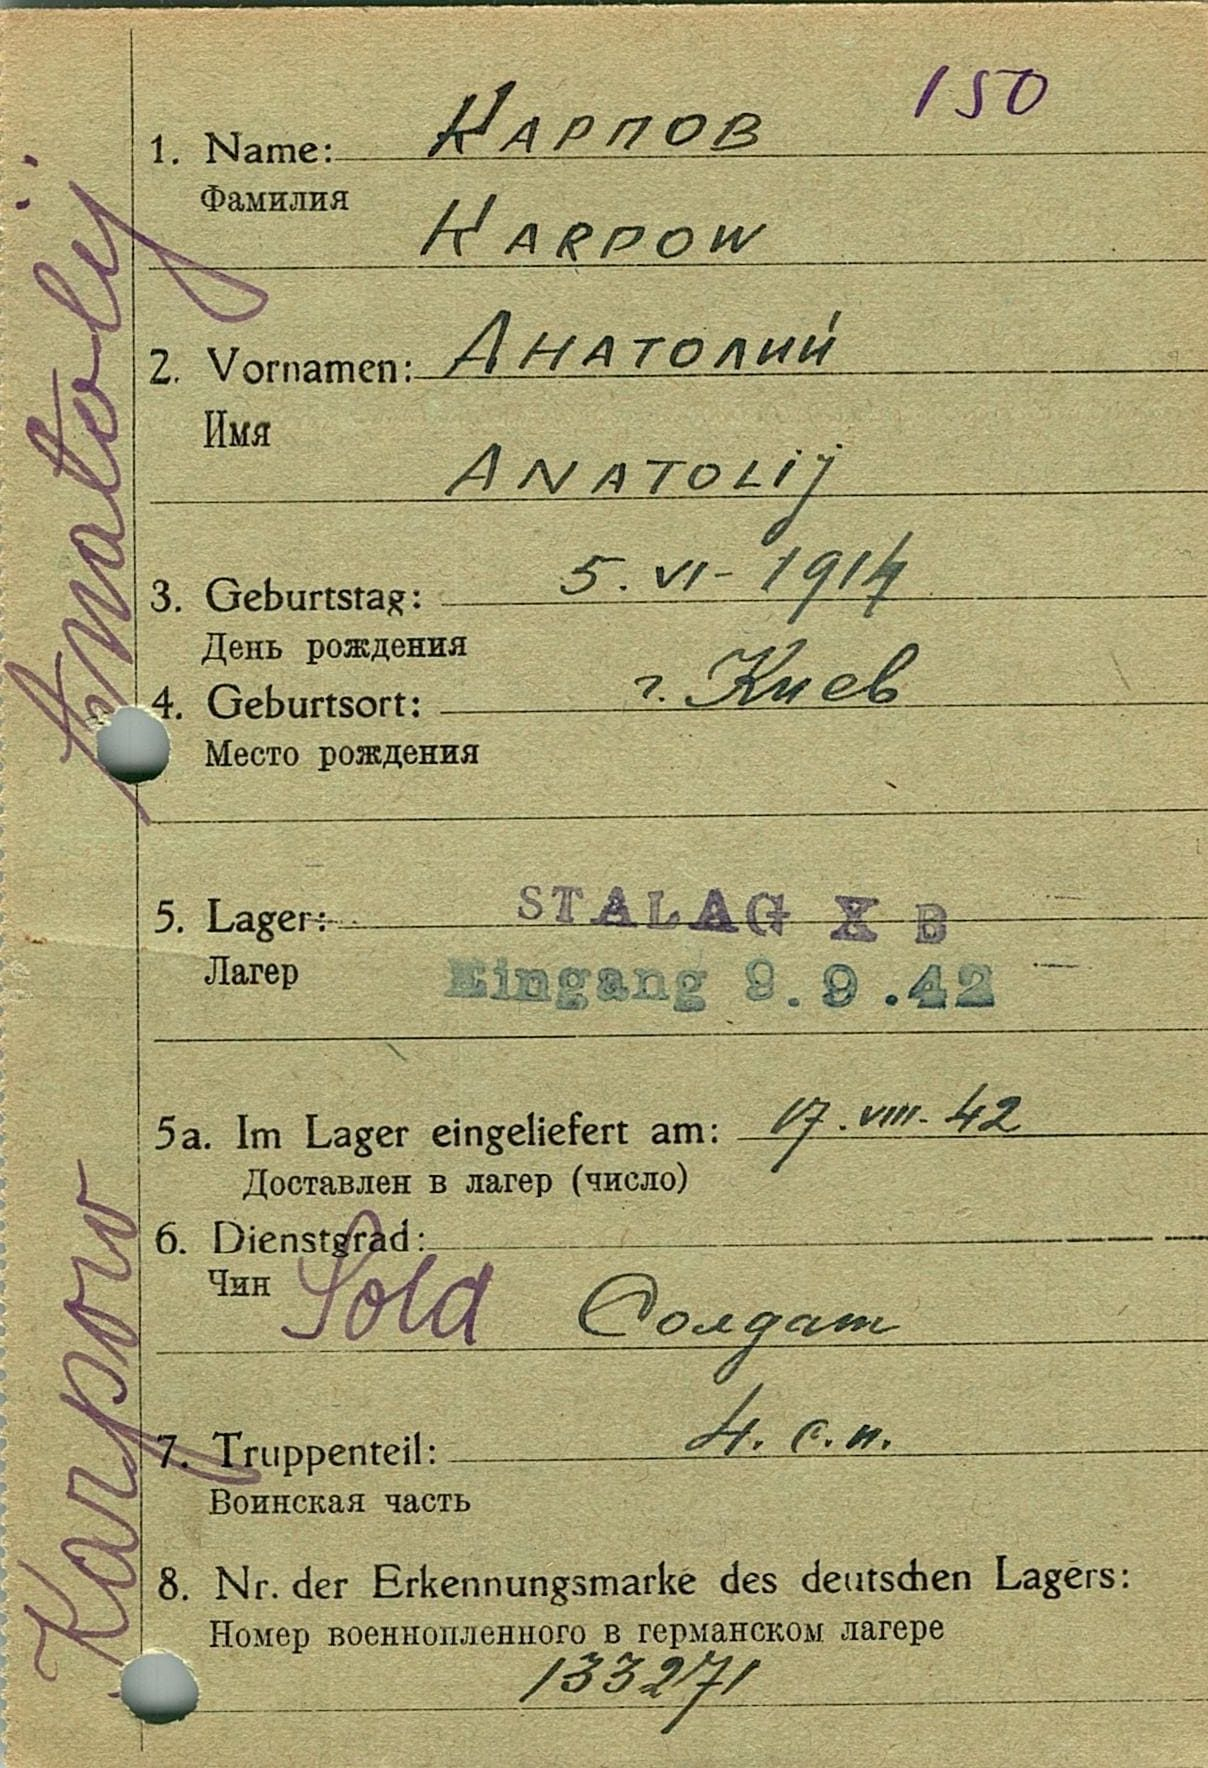 150
1. Name: Карпов
Фамилия
Karpow
2. Vornamen: Анатолий
Имя
Anatolij
3. Geburtstag: 5. VI - 1914
День рождения
4. Geburtsort: г. Киев
Место рождения
5. Lager: STALAG X B
Лагер Eingang 9.9.42
5a. Im Lager eingeliefert am: 17. VIII - 42
Доставлен в лагер (число)
6. Dienstgrad:
Чин Sold Солдат
7. Truppenteil: 4. с.п.
Воинская часть
8. Nr. der Erkennungsmarke des deutschen Lagers:
Номер военнопленного в германском лагере
133271
Karpow Anatolij